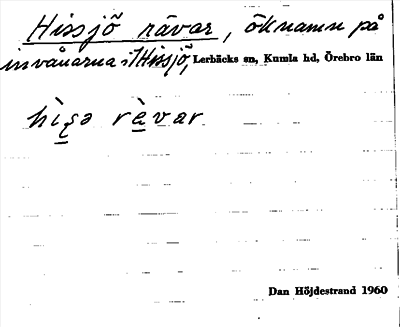 Hissjö rävar, öknamn på
invånarna i Hissjö, Lerbäcks sn, Kumla hd, Örebro län
hìʂə rὲvar
Dan Höjdestrand 1960